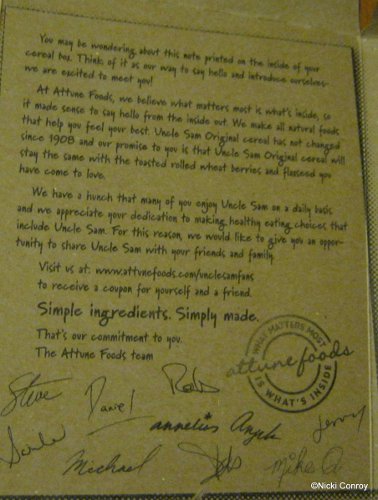 You may be wondering about this note printed on the inside of your
cereal box. Think of it as our way to say hello and introduce ourselves-
we are excited to meet you!
At Attune Foods, we believe what matters most is what's inside, so
it made sense to say hello from the inside out. We make all natural foods
that help you feel your best. Uncle Sam Original cereal has not changed
since 1908 and our promise to you is that Uncle Sam Original cereal will
stay the same with the toasted rolled wheat berries and flaxseed you
have come to love.
We have a hunch that many of you enjoy Uncle Sam on a daily basis
and we appreciate your dedication to making healthy eating choices that
include Uncle Sam. For this reason, we would like to give you an oppor-
tunity to share Uncle Sam with your friends and family.
Visit us at: www.attunefoods.com/unclesamfans
to receive a coupon for yourself and a friend.
Simple ingredients. Simply made.
That's our commitment to you.
The Attune Foods team
WHAT MATTERS MOST
attunefoods
IS WHAT'S INSIDE
Steve Daniel Rob
annelies Angela Jenny
Michael Mike A.
©Nicki Conroy